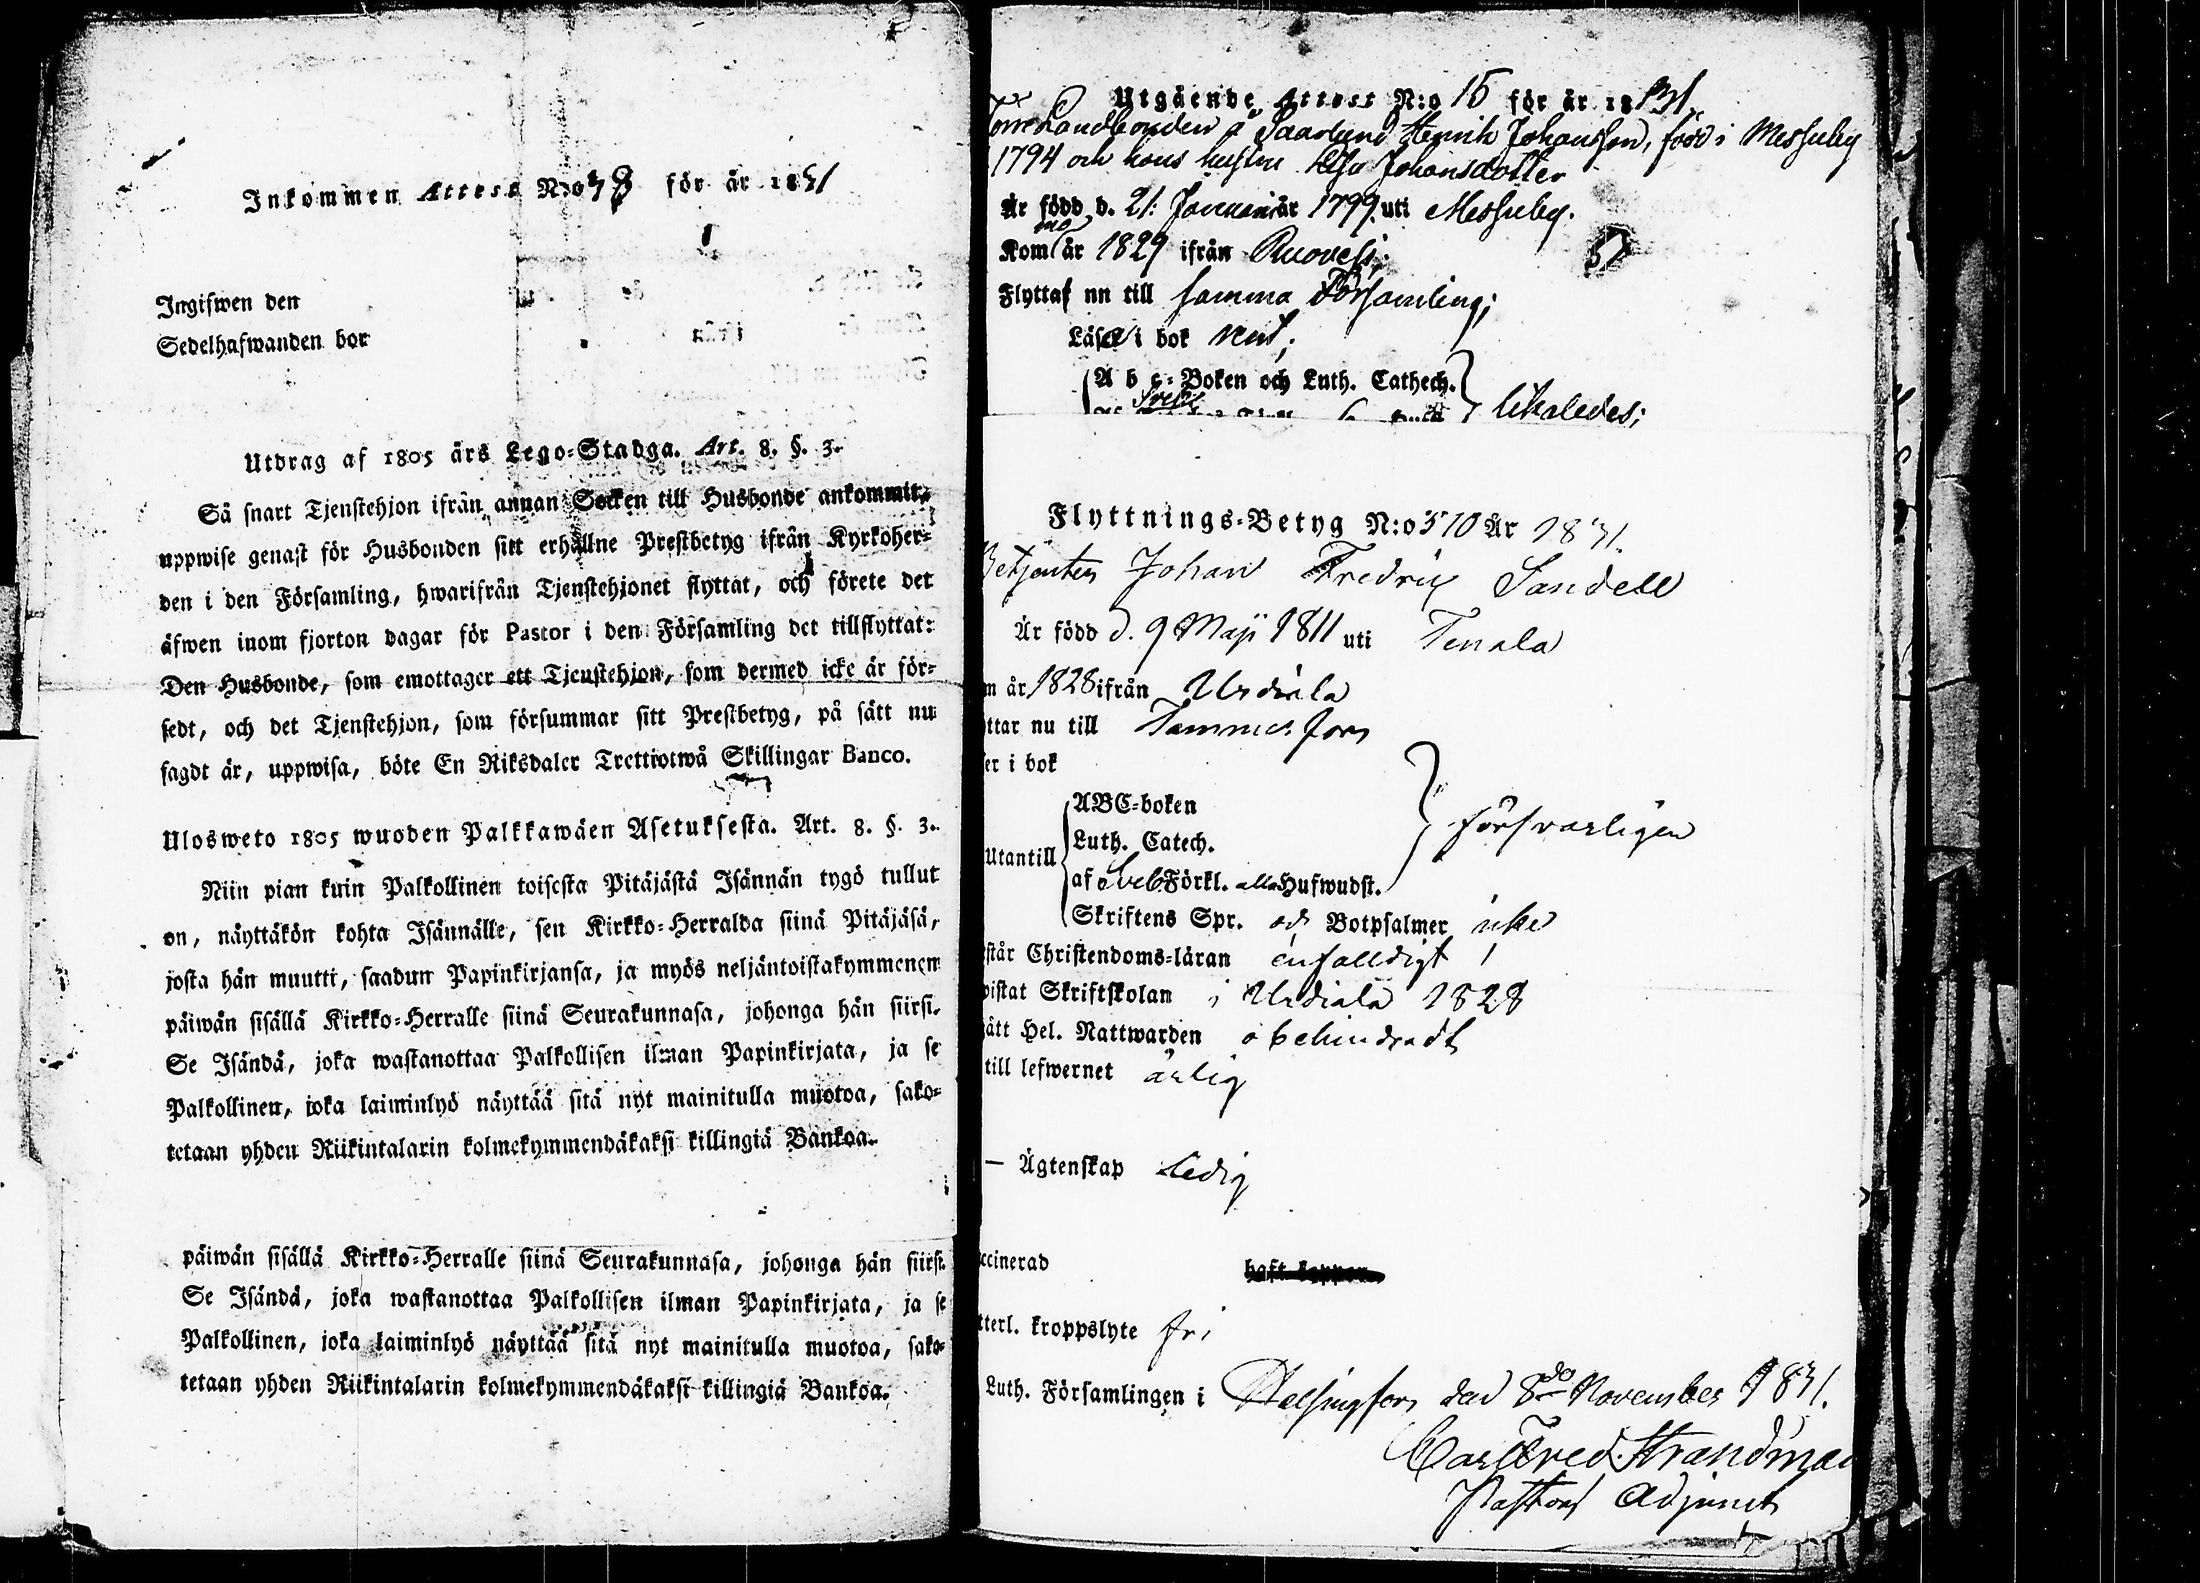 Inkommen Attest N:o 78 för år 1831
Ingifwen den
Sedelhafwanden bor
Utdrag af 1805 års Lego-Stadga. Art. 8. §. 3.
Så snart Tjenstehjon ifrån annan Socken till Husbonde ankommit,
uppwise genast för Husbonden sitt erhållne Prestbetyg ifrån Kyrkoher-
den i den Församling, hwarifrån Tjenstehjonet flyttat, och förete det
äfwen inom fjorton dagar för Pastor i den Församling det tillflyttat:
Den Husbonde, som emottager ett Tjenstehjon, som dermed icke är för-
sedt, och det Tjenstehjon, som försummar sitt Prestbetyg, på sätt nu
sagdt är, uppwisa, böte En Riksdaler Trettiotwå Skillingar Banco.
Ulosweto 1805 wuoden Palkkawäen Asetuksesta. Art. 8. §. 3.
Niin pian kuin Palkollinen toisesta Pitäjästä Isännän tygö tullut
on, näyttäkön kohta Isännälle, sen Kirkko-Herralda siinä Pitäjäsä,
josta hän muutti, saadun Papinkirjansa, ja myös neljäntoistakymmenen
päiwän sisällä Kirkko-Herralle siinä Seurakunnasa, johonga hän siirsi.
Se Isändä, joka wastanottaa Palkollisen ilman Papinkirjata, ja se
Palkollinen, joka laiminlyö näyttää sitä nyt mainitulla muotoa, sako-
tetaan yhden Riikintalarin kolmekymmendäkaksi killingiä Bankoa.
päiwän sisällä Kirkko-Herralle siinä Seurakunnasa, johonga hän siirsi.
Se Isändä, joka wastanottaa Palkollisen ilman Papinkirjata, ja se
Palkollinen, joka laiminlyö näyttää sitä nyt mainitulla muotoa, sako-
tetaan yhden Riikintalarin kolmekymmendäkaksi killingiä Bankoa.
Utgående Attest N:o 15 för år 1831.
Landbonden å Saarlund Henrik Johansson, född i Messuby
1794 och hans hustru Johansdotter
Är född d. 21: Januari år 1799 uti Messuby.
Kom år 1829 ifrån Ruovesi;
Flytta nu till samma Församling;
Läsa i bok rent;
A b c-Boken och Luth. Cathech.
Svebil. likaledes;
Flyttnings-Betyg N:o 570 År 1831.
Betjenten Johan Fredric Sandell
Är född d. 9 Maji 1811 uti Tenala
m år 1828 ifrån Urdiala
ttar nu till Tammerfors
er i bok
ABC-boken
Luth. Catech. försvarligen
Utantill
af Sveb Förkl. alla Hufwudst.
Skriftens Spr. och Botpsalmer icke
står Christendoms-läran enfalldigt
wistat Skriftskolan i Urdiala 1828
ått Hel. Nattwarden obehindradt
till lefwernet ärlig
— Ägtenskap Ledig
ccinerad haft koppor
tterl. kroppslyte fri
Luth. Församlingen i Helsingfors den 8de November 1831.
Carl Fred. Strandman
Pastors Adjunct